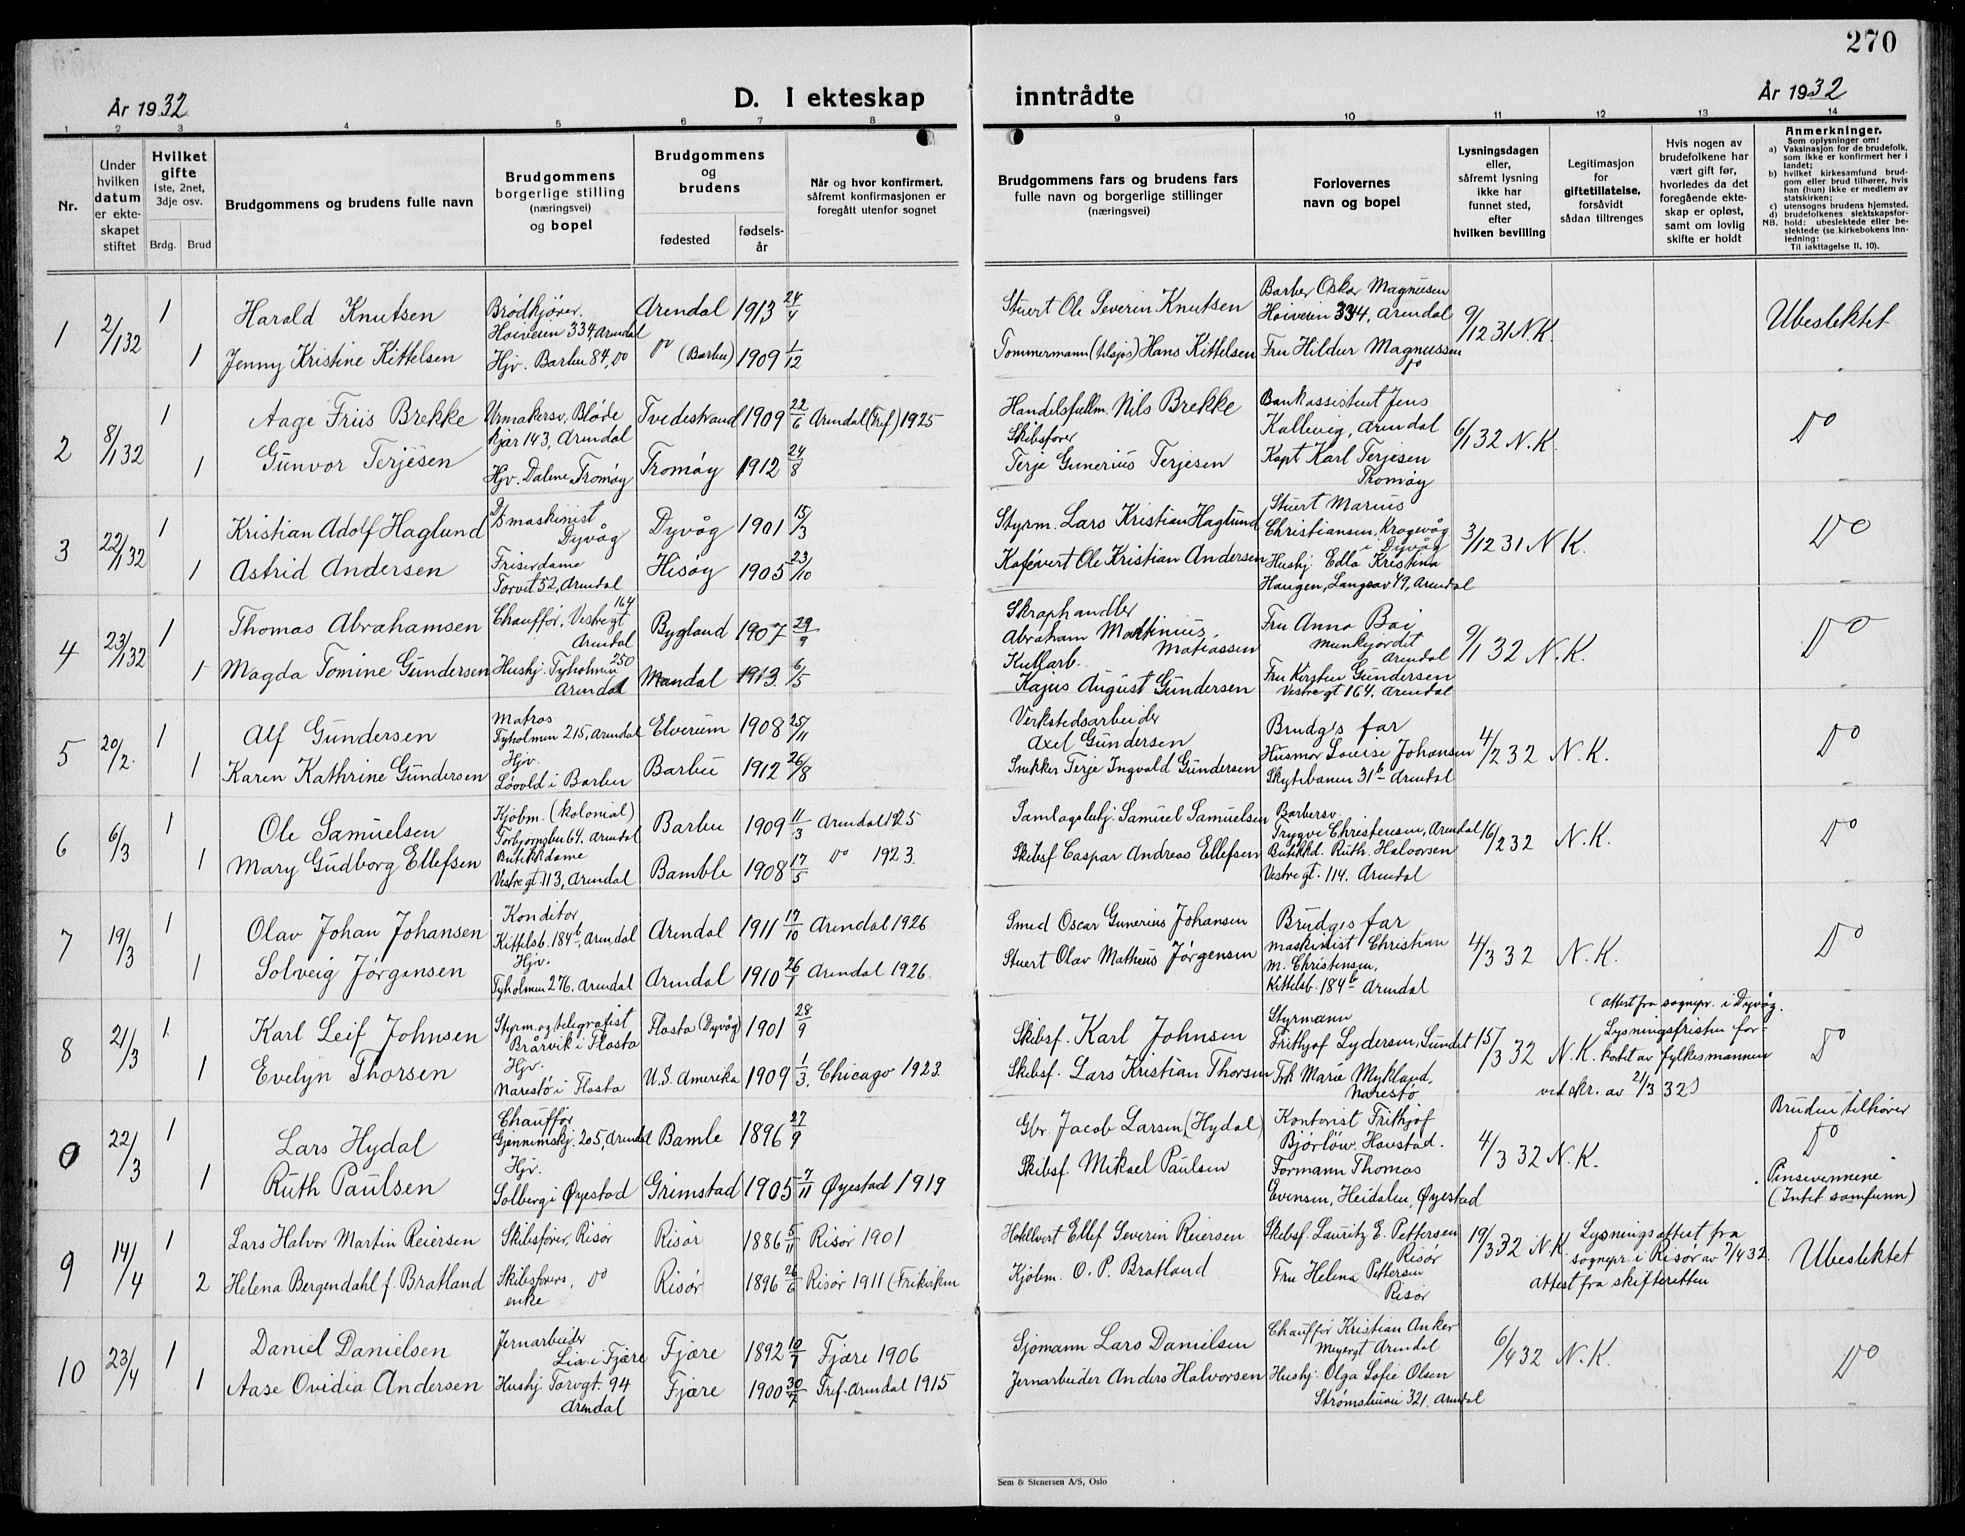 270
År 1932
D. I ekteskap inntrådte
År 1932
1 2 3 4 5 6 7 8 9 10 11 12 13 14
Nr.
Under hvilken datum er ekteskapet stiftet
Hvilket gifte
1ste, 2net, 3dje osv.
Brdg. Brud
Brudgommens og brudens fulle navn
Brudgommens borgerlige stilling (næringsvei) og bopel
Brudgommens og brudens
fødested
fødselsår
Når og hvor konfirmert, såfremt konfirmasjonen er foregått utenfor sognet
Brudgommens fars og brudens fars fulle navn og borgerlige stillinger (næringsvei)
Forlovernes navn og bopel
Lysningsdagen eller, såfremt lysning ikke har funnet sted, efter hvilken bevilling
Legitimasjon for giftetillatelse, forsåvidt sådan tiltrenges
Hvis nogen av brudefolkene har vært gift før, hvorledes da det foregående ekteskap er opløst, samt om lovlig skifte er holdt
Anmerkninger.
Som oplysninger om:
a) Vaksinasjon for de brudefolk, som ikke er konfirmert her i landet;
b) hvilket kirkesamfund brudgom eller brud tilhører, hvis han (hun) ikke er medlem av statskirken;
c) utensogns brudens hjemsted.
d) brudefolkenes slektskapsforhold: ubeslektede eller beslektede (se kirkebokens innledning:
NB.
Til iakttagelse II, 10).
1 2/1 32 1 Harald Knutsen Brødkjører. Høiveien 334, Arendal Arendal 1913 24/4 Stuert Ole Severin Knutsen Barber Oskar Magnussen Høiveien 334, Arendal 9/12 31 N.K. Ubeslektet
1 Jenny Kristine Kittelsen Hjv. Barbu 84, do do (Barbu) 1909 1/12 Tømmermann (tilsjøs) Hans Kittelsen Fru Hildur Magnussen do
2 8/1 32 1 Aage Friis Brekke Urmakersv, Bløde kjær 143, Arendal Tvedestrand 1909 22/6 Arendal (Fref) 1925 Handelsfullm. Nils Brekke Bankassistent Jens Kallevig, Arendal 6/1 32 N.K. Do
1 Gunvor Terjesen Hjv. Dalene Tromøy Tromøy 1912 24/8 Skibsfører Terje Gunerius Terjesen Kapt Karl Terjesen Tromøy
3 22/1 32 1 Kristian Adolf Haglund D/s maskinist Dyvåg Dyvåg 1901 15/3 Styrm. Lars Kristian Haglund Stuert Marius Christiansen, Kragevåg i Dyvåg 3/12 31 N.K. Do
1 Astrid Andersen Friserdame Torvet 52, Arendal Hisøy 1905 23/10 Kafévert Ole Kristian Andersen Hushj Edla Kristina Haugen, Langsæv 49, Arendal
4 23/1 32 1 Thomas Abrahamsen Chauffør, Vestregt 164 Arendal Bygland 1907 29/9 Skraphandler Abraham Martinius Matiassen Fru Anna Boi Munkejordet Arendal 9/1 32 N.K. Do
1 Magda Tomine Gundersen Hushj. Tyholmen 250 Arendal Mandal 1913 6/5 Kullarb. Kajus August Gundersen Fru Kirsten Gundersen Vestregt 164. Arendal
5 20/2. 1 Alf Gundersen Matros Tyholmen 215, Arendal Elverum 1908 25/11 Verkstedsarbeider Axel Gundersen Brudg's far 4/2 32 N.K. Do
1 Karen Kathrine Gundersen Hjv. Løvold i Barbu Barbu 1912 26/8 Snekker Terje Ingvald Gundersen Husmor Louise Johansen Skytebanen 31b Arendal
6 6/3 1 Ole Samuelsen Kjøbm. (kolonial) Torbjørnsbu 64. Arendal Barbu 1909 11/3 Arendal 1925 Samlagsbetj. Samuel Samuelsen Barbersv. Trygve Christensen, Arendal 16/2 32 N.K. Do
1 Mary Gudborg Ellefsen Butikkdame Vestregt. 113, Arendal Bamble 1908 17/5 do 1923. Skibsf Caspar Andreas Ellefsen Butikkd. Ruth. Halvorsen Vestregt. 114. Arendal
7 19/3 1 Olav Johan Johansen Konditor Kittelsb. 184b, Arendal Arendal 1911 17/10 Arendal 1926 Smed Oscar Gunerius Johansen Brudg's far 4/3 32 N.K. Do
1 Solveig Jørgensen Hjv. Tyholmen 276. Arendal Arendal 1910 26/7 Arendal 1926. Stuert Olav Matheus Jørgensen maskinist Christian M. Christensen, Kittelsb. 184b Arendal
8 21/3 1 Karl Leif Johnsen Styrm. og telegrafist Brårvik i Flosta Flosta (Dyvåg) 1901 28/9 Skibsf. Karl Johnsen Styrmann Frithjof Lydersen, Sundet 15/3 32 N.K. (attest fra sognepr. i Dyvåg. Lysningsfristen forkortet av fylkesmannen ved skr. av 21/3 32) Do
1 Evelyn Thorsen Hjv. Narestø i Flosta U.S. Amerika 1909 1/3. Chicago 1923. Skibsf. Lars Kristian Thorsen Frk Marie Mykland, Narestø
0 22/3 1 Lars Hydal Chauffør Gjennemskj. 205, Arendal Bamle 1896 27/9 Gbr. Jacob Larsen (Hydal) Kontorist Frithjof Bjørlów, Havstad. 4/3 32 N.K. Do Bruden tilhører Pinsevennene (Intet samfunn)
1 Ruth Paulsen Hjv. Solberg i Øyestad Grimstad 1905 7/11 Øyestad 1919 Skibsf. Mikael Paulsen Formann Thomas Evensen, Heidalen, Øyestad
9 14/4 1 Lars Halvor Martin Reiersen Skibsfører, Risør Risør 1886 5/11 Risør 1901 Hotellvert Ellef Severin Reiersen Skibsf. Lauritz E. Pettersen Risør 19/3 32 N.K. Lysningsattest fra sognepr. i Risør av 7/4 32. Attest fra skifteretten Ubeslektet
2 Helena Bergendahl f. Bratland Skibsførers enke, do Risør 1896 26/6 Risør 1911 (Frikirken Kjøbm. O. P. Bratland Fru Helena Pettersen Risør
10 23/4 1 Daniel Danielsen Jernarbeider Lia i Fjære Fjære 1892 10/7 Fjære 1906 Sjømann Lars Danielsen Chauffør Kristian Anker Meyergt Arendal 6/4 32 N.K. Do
1 Aase Ovidia Andersen Hushj Torvgt. 94 Arendal Fjære 1900 30/7 Fref. Arendal 1915 Jernarbeider Anders Halvorsen Hushj. Olga Sofie Olsen Strømsbuvei 321. Arendal
Sem & Stenersen A/S, Oslo